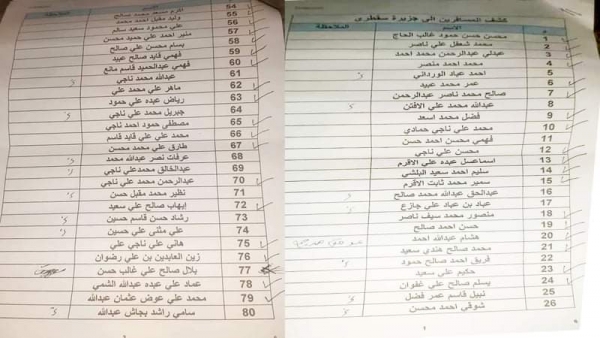 كشف المسافرين الى جزيرة سقطرى
م الاسم الملاحظة
1 محسن حسن حمود غالب الحاج
2 محمد شعفل علي ناصر
3 عبدلي عبدالرحمن محمد احمد
4 محمد احمد منصر
5 احمد عباد الورداني
6 عمر محمد عبيد
7 صالح محمد ناصر عبدالرحمن
8 عبدالله محمد علي الافتن
9 فضل محمد اسعد
10 محمد علي ناجي حمادي
11 فهمي محسن احمد
12 محسن علي ناجي
13 اسماعيل عبده علي الاقرم
14 سليم احمد سعيد البلشي
15 سمير محمد ثابت الاقرم
16 عبدالحق عبدالله محمد صالح
17 عباد بن عباد علي جازع
18 منصور محمد سيف ناصر
19 احمد صالح حسن
20 هشام عبدالله احمد
21 محمد صالح هندي سعيد
22 فريق احمد صالح حمود
23 حكيم علي سعيد
24 يسلم صالح علي غفوان
25 نبيل قاسم عمر فضل
26 شوقي احمد محسن
54 محمد صالح
55 وليد مقبل احمد محمد
56 علي محمود سعيد سالم
57 منير احمد علي حميد محسن
58 بسام محسن علي صالح
59 فهمي قايد صالح عبيد
60 فهمي عبدالحميد قاسم مانع
61 عبدالله محمد ناجي
62 ماهر علي محمد علي
63 رياض عبده علي حمود
64 جبريل محمد علي ناجي
65 مصطفى حمود احمد ناجي
66 محمد علي علي قايد قاسم
67 طارق علي محمد محسن
68 عرفات نصر عبدالله محمد
69 عبدالخالق محمدعلي ناجي
70 عبدالرحمن محمد علي ناجي
71 نظير محمد مقبل حسن
72 إيهاب صالح علي سعيد
73 رشاد حسن قاسم حسين
74 علي مثنى علي حسين
75 هاني علي ناجي علي
76 زين العابدين بن علي رضوان
77 بلال صالح علي غالب حسن
78 عماد علي عبده عبدالله الشمي
79 محمد علي عوض عثمان عبدالله
80 سامي راشد بجاش عبدالله